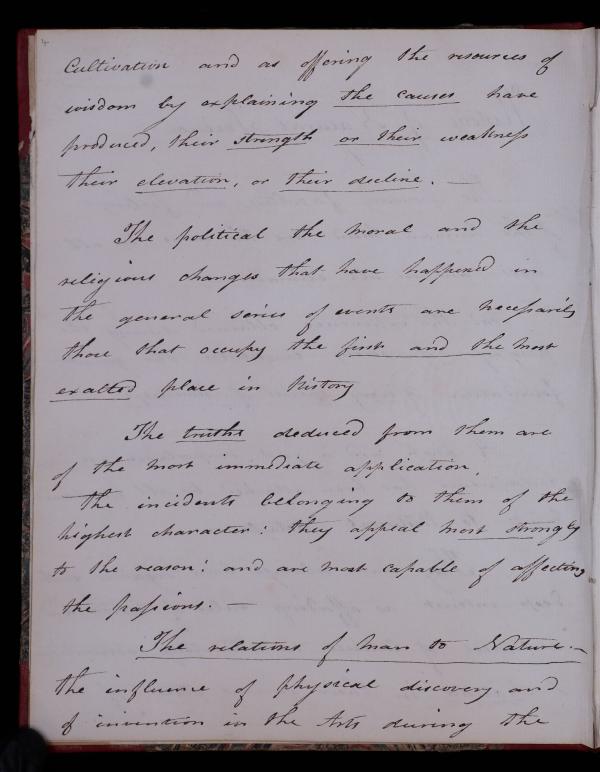 4
Cultivation and as offering the resources of
wisdom by explaining the causes have
produced, their strength or their weakness
their elevation, or their decline. —
The political the moral and the
religious changes that have happened in
the general series of events are necessarily
those that occupy the first and the most
exalted place in History
The truths deduced from them are
of the most immediate application.
The incidents belonging to them of the
highest character: they appeal most strongly
to the reason: and are most capable of affecting
the passions. —
The relations of man to Nature. —
the influence of physical discovery and
of invention in the Arts during the